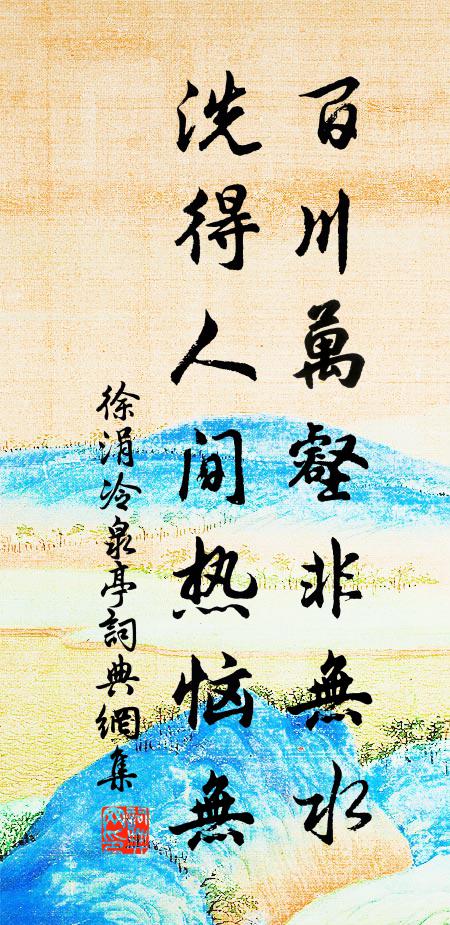 百川萬壑非無水
洗得人间热恼無
徐涓冷泉亭詞典網集